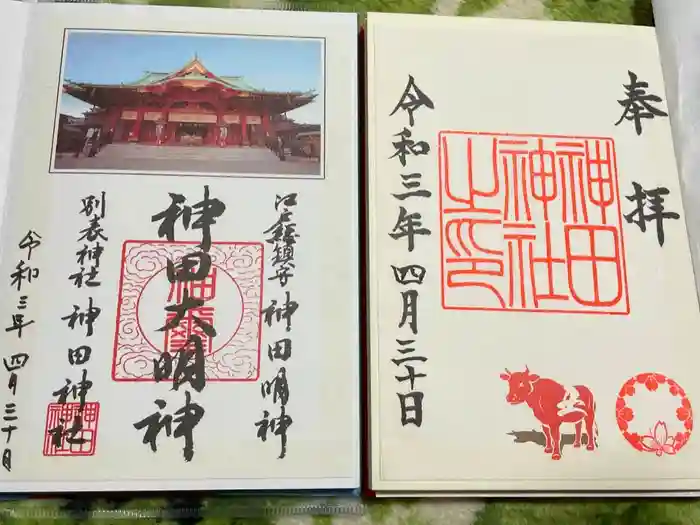 江戸総鎮守 神田明神
神田大明神
別表神社 神田神社
令和三年 四月三十日
神田
神社
奉拝
神田
神社
之印
令和三年 四月三十日